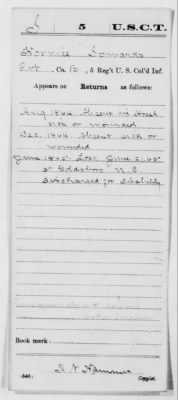 S 5 U.S.C.T.
Edwards
Pvt., Co. B, 5 Reg't U. S. Col'd Inf.
Appears on Returns as follows:
Aug 1864 Absent in Hosp.
sick or wounded
Dec. 1864 Absent sick or
wounded
June 1865 Loss June 2/65
at Goldsboro N. C.
Discharged for Disability
Book mark:
(546)
Copyist.